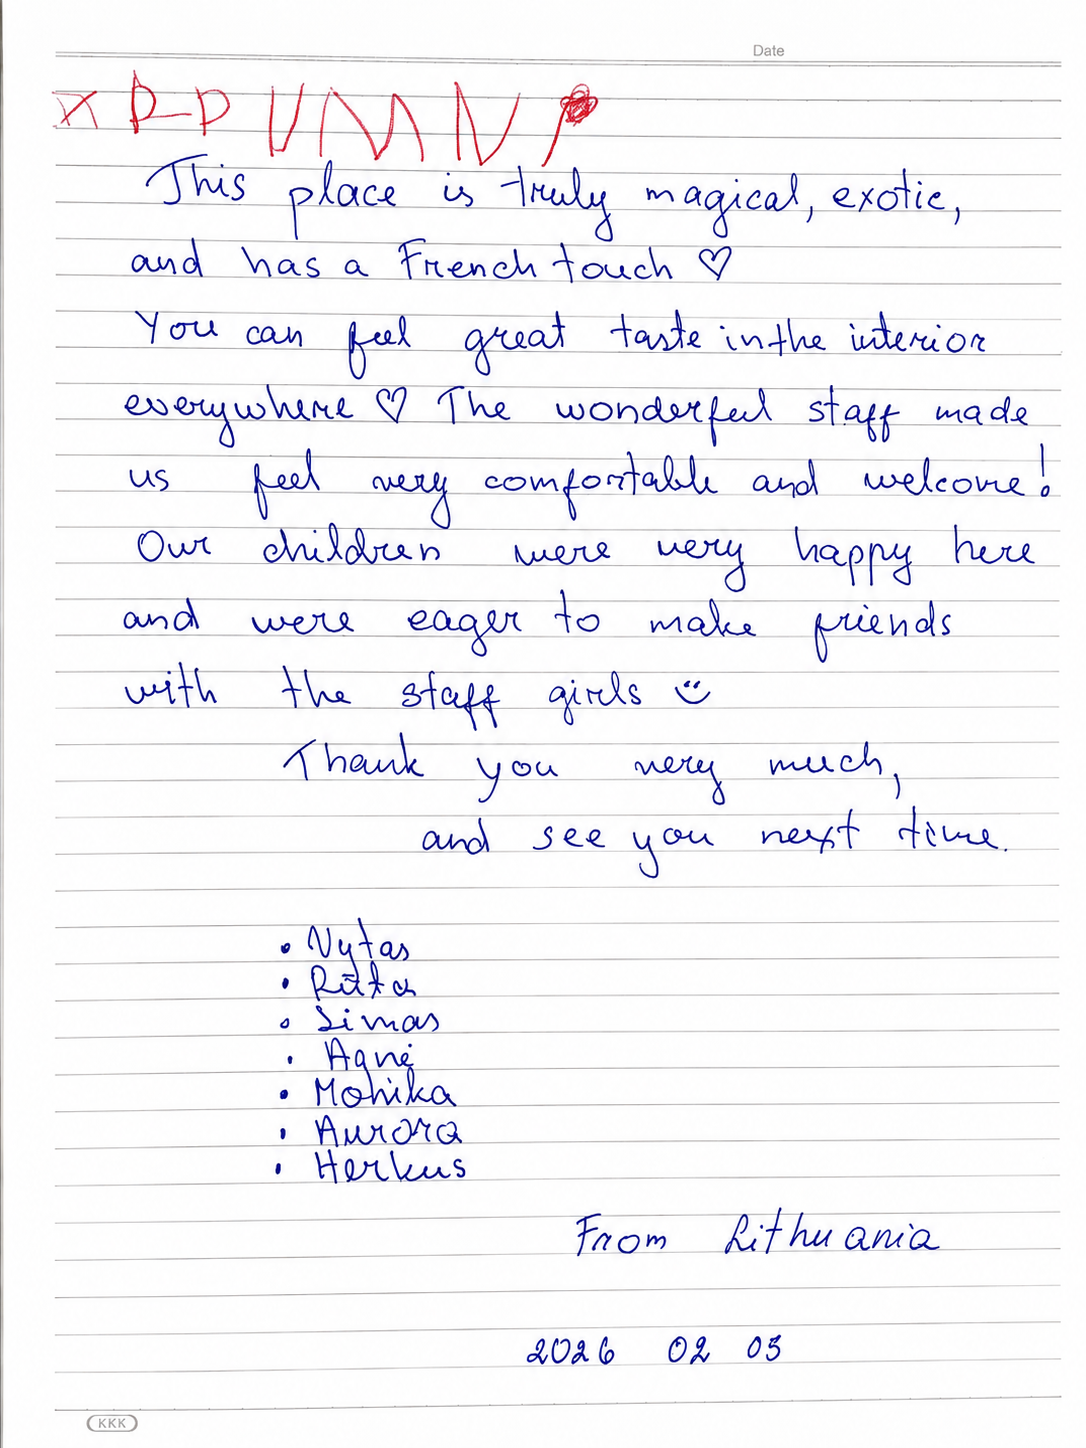 Date
This place is truly magical, exotic,
and has a French touch ♡
You can feel great taste in the interior
everywhere ♡ The wonderful staff made
us feel very comfortable and welcome!
Our children were very happy here
and were eager to make friends
with the staff girls ☺
Thank you very much,
and see you next time.
• Vytas
• Rūta
• Simas
• Agnė
• Monika
• Aurora
• Herkus
From Lithuania
2026 02 03
KKK